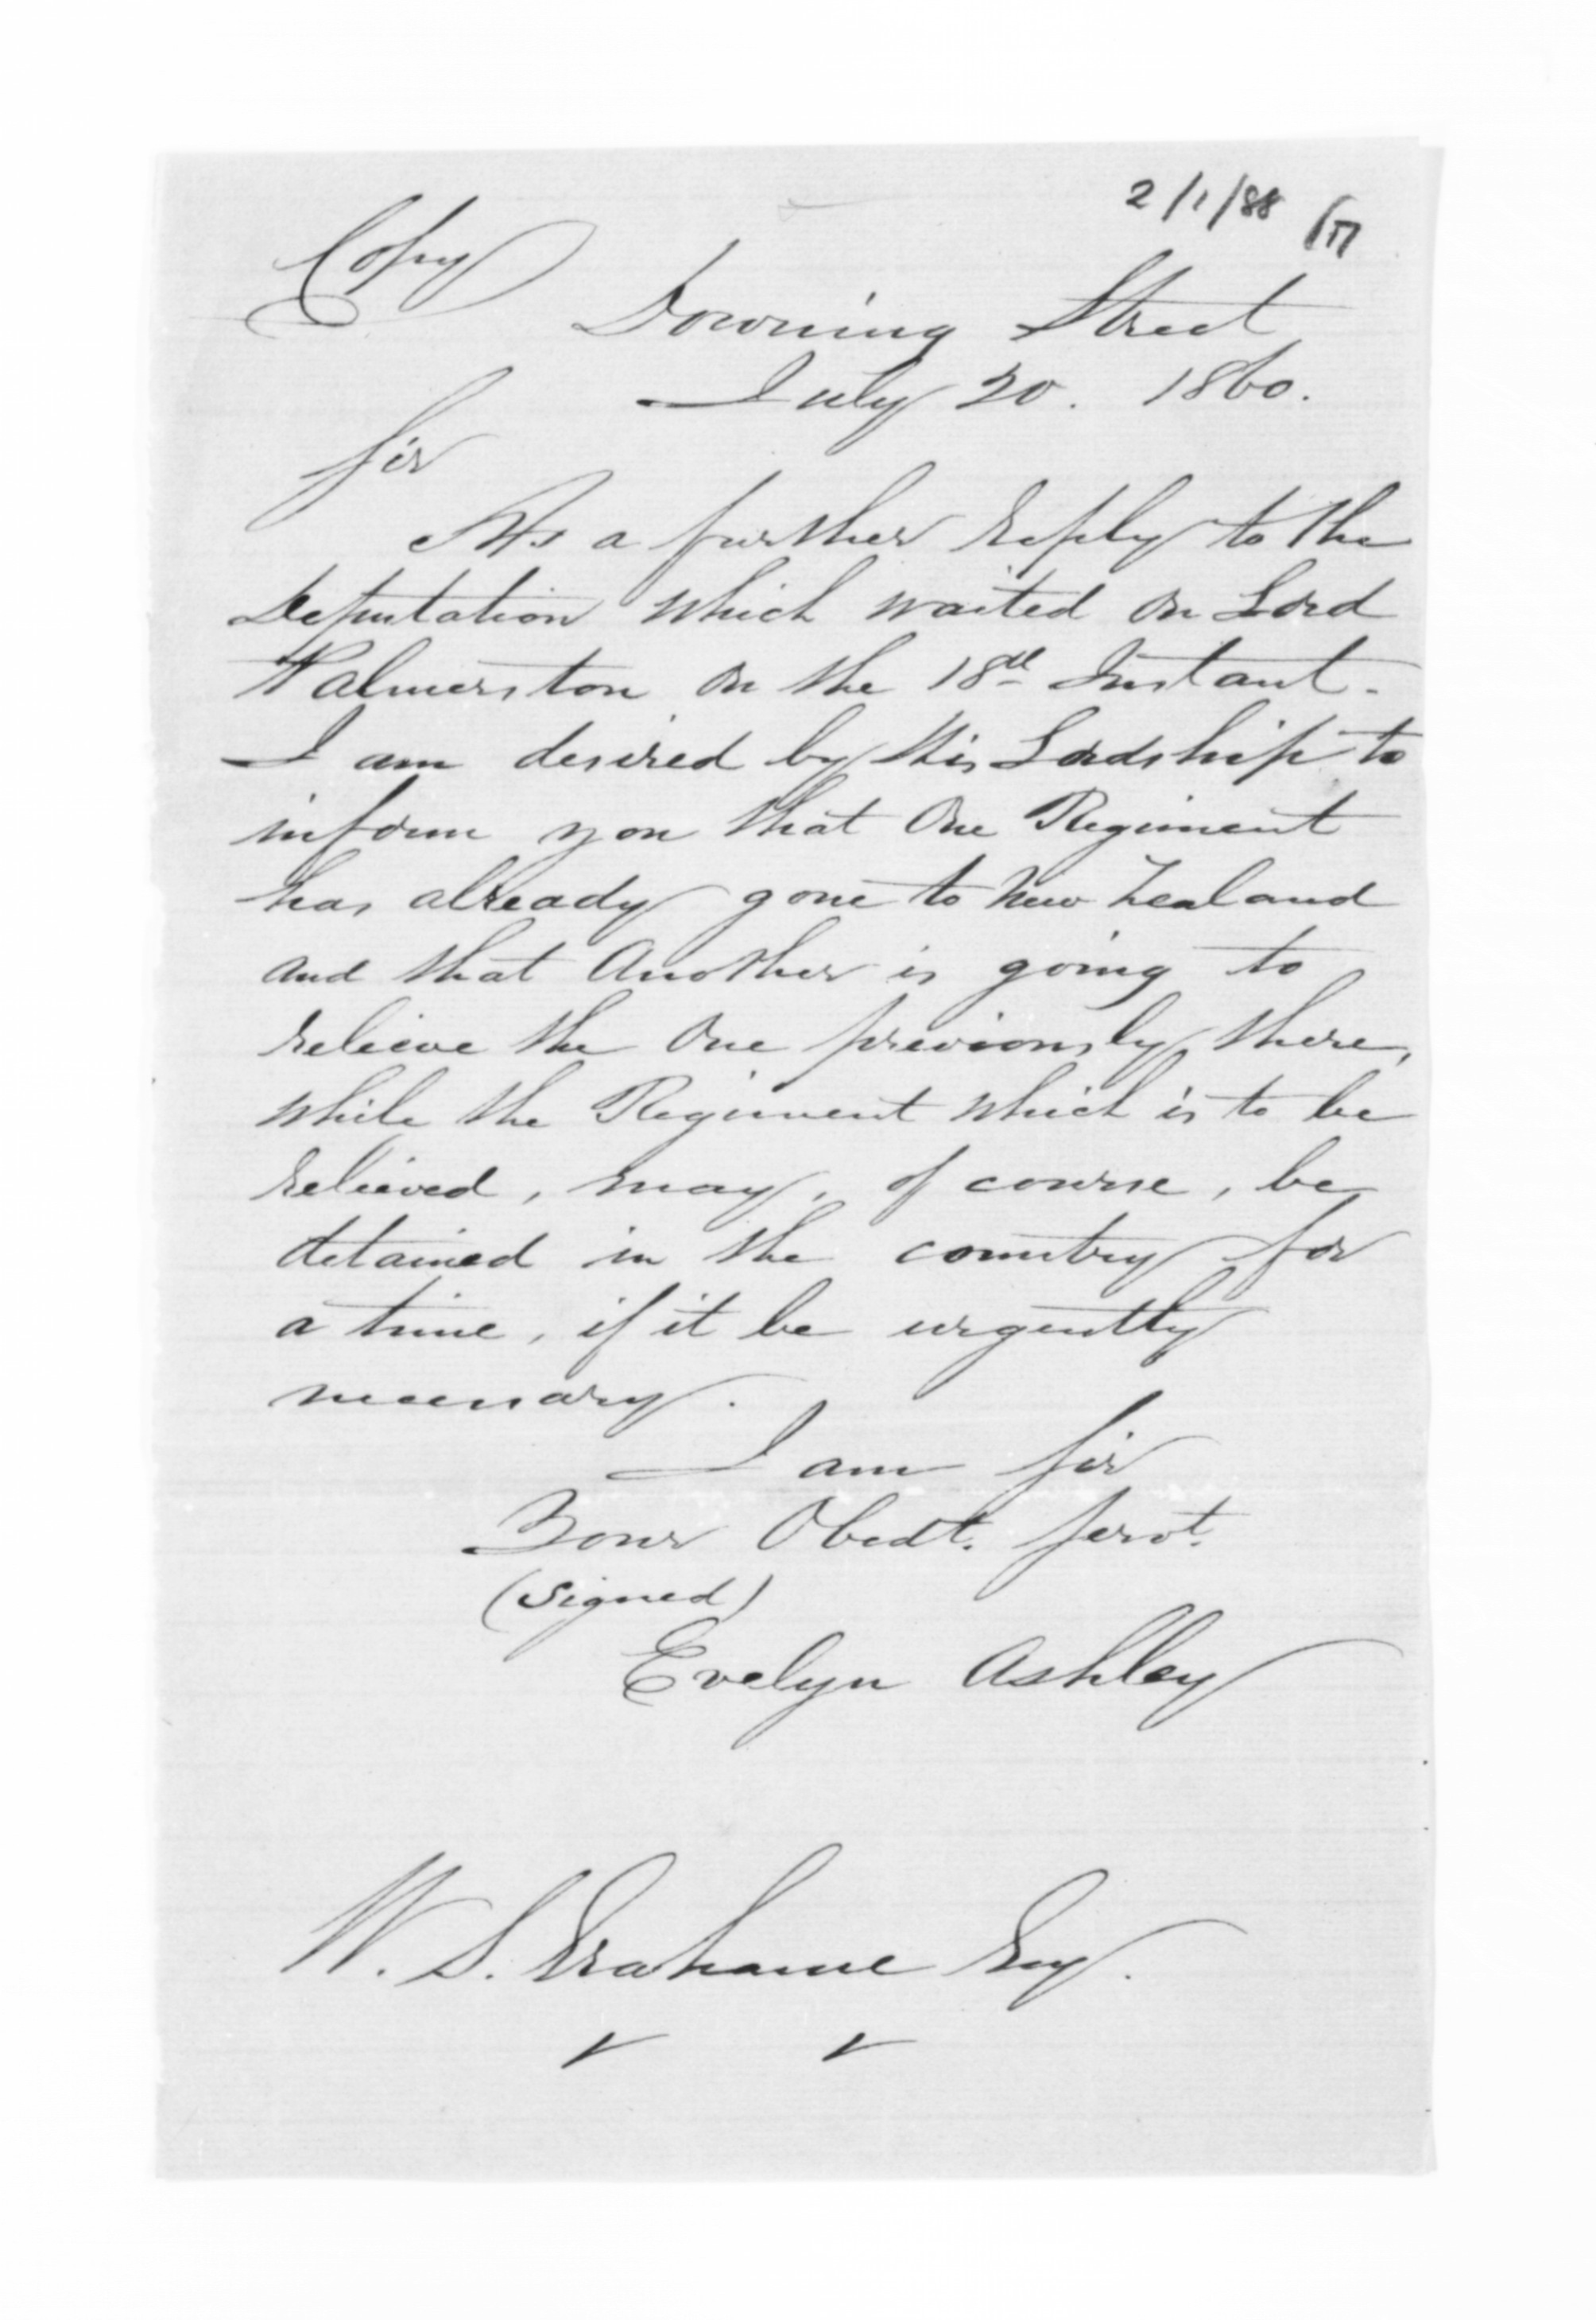 2/1/88
Copy
Downing Street
July 20. 1860.
Sir
As a further reply to the
Deputation which waited on Lord
Palmerston on the 18th Instant.
I am desired by His Lordship to
inform you that One Regiment
has already gone to New Zealand
and that Another is going to
relieve the One previously there,
while the Regiment which is to be
relieved, may, of course, be
detained in the country for
a time, if it be urgently
necessary.
I am Sir
Your Obedt. Servt.
(Signed)
Evelyn Ashley
W. S. Grahame Esq.